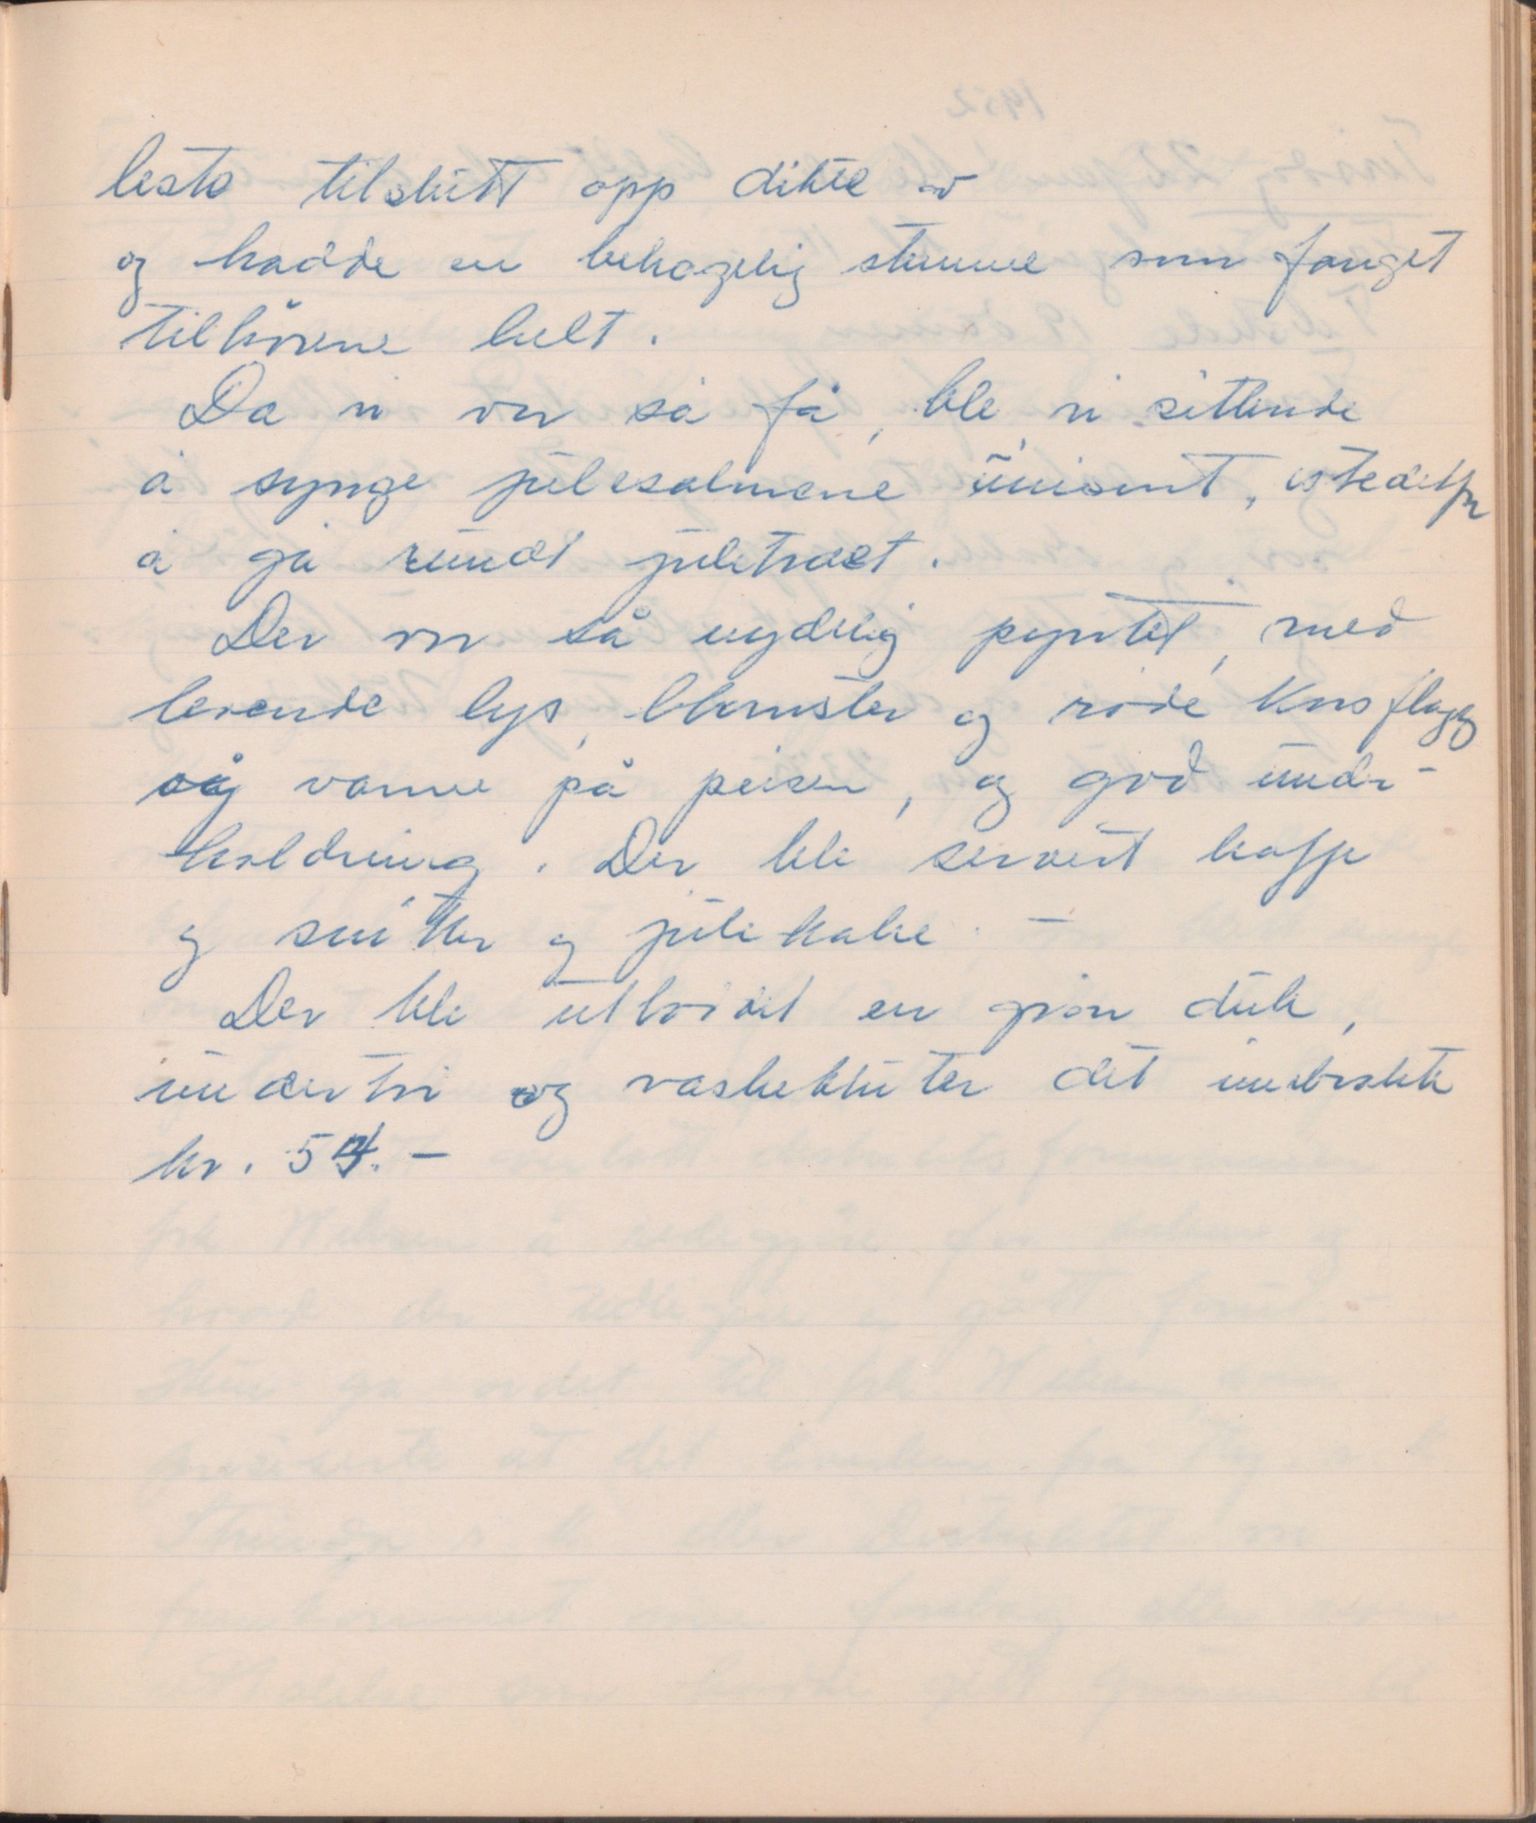 leste tilslutt opp dikte av
og hadde en behagelig stemme som fanget
tilhørene helt.
Da vi var så få, ble vi sittende
å synge julesalmene unisont, istedetfor
å gå rundt juletræet.
Der var så nydelig pyntet, med
levende lys, blomster og røde korsflagg
og varme på peisen, og god under-
holdning. Der ble servert kaffe
og snitter og julekake. -
Der ble utloddet en grøn duk,
undertøi og vaskekluter det innbrakte
kr. 54. -